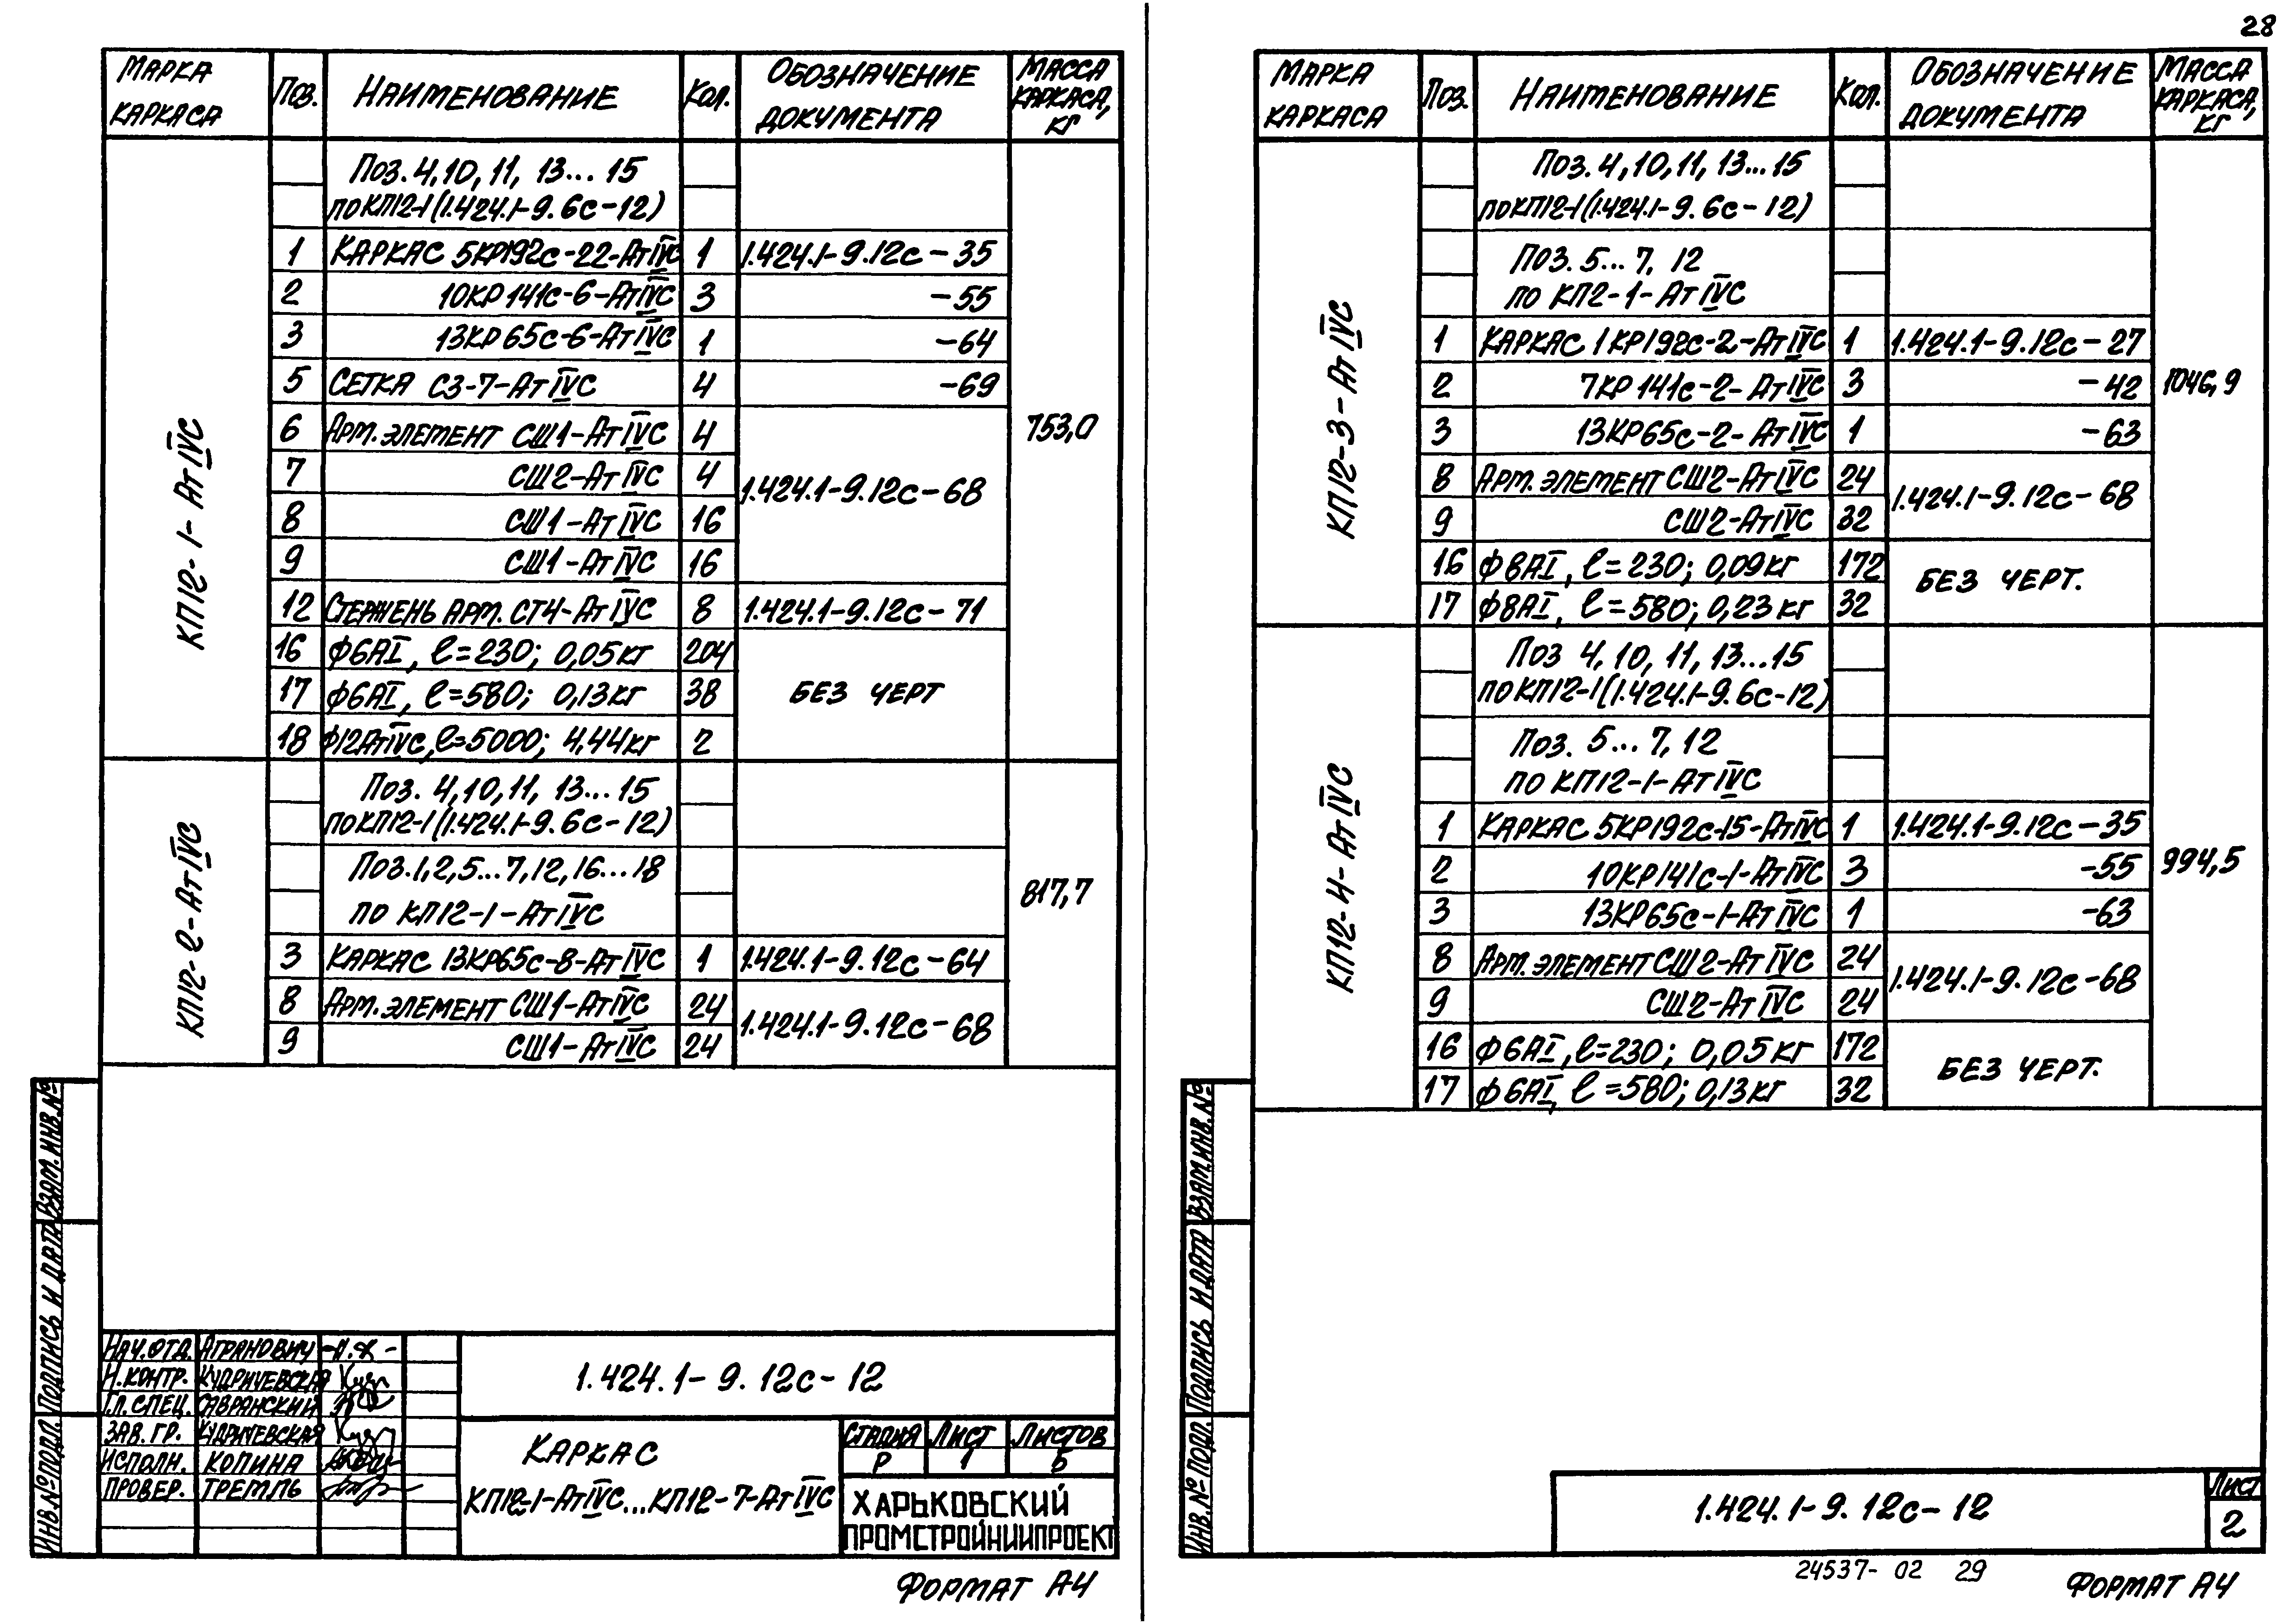 28
Марка каркаса | Поз. | Наименование | Кол. | Обозначение документа | Масса каркаса, кг
КП12-1-АтIVС
753,0
Поз. 4, 10, 11, 13...15
по КП12-1 (1.424.1-9.6с-12)
1 | Каркас 5КР192с-22-АтIVС | 1 | 1.424.1-9.12с-35
2 | 10КР141с-6-АтIVС | 3 | -55
3 | 13КР65с-6-АтIVС | 1 | -64
5 | Сетка С3-7-АтIVС | 4 | -69
6 | Арм. элемент СШ1-АтIVС | 4
7 | СШ2-АтIVС | 4 | 1.424.1-9.12с-68
8 | СШ1-АтIVС | 16
9 | СШ1-АтIVС | 16
12 | Стержень арм. СТ4-АтIVС | 8 | 1.424.1-9.12с-71
16 | Ф6АI, ℓ=230; 0,05кг | 204
17 | Ф6АI, ℓ=580; 0,13кг | 38 | без черт
18 | Ф12АтIVС, ℓ=5000; 4,44кг | 2
КП12-2-АтIVС
817,7
Поз. 4, 10, 11, 13...15
по КП12-1 (1.424.1-9.6с-12)
Поз. 1, 2, 5...7, 12, 16...18
по КП12-1-АтIVС
3 | Каркас 13КР65с-8-АтIVС | 1 | 1.424.1-9.12с-64
8 | Арм. элемент СШ1-АтIVС | 24 | 1.424.1-9.12с-68
9 | СШ1-АтIVС | 24
Взам. инв. №
Подпись и дата
Инв. № подл.
Нач. отд. Агранович
Н. контр. Кудричевская
Гл. спец. Савранский
Зав. гр. Кудричевская
Исполн. Копина
Провер. Тремль
1.424.1-9.12с-12
Каркас
КП12-1-АтIVС...КП12-7-АтIVС
Стадия | Лист | Листов
Р | 1 | 5
Харьковский
Промстройниипроект
Формат А4
Марка каркаса | Поз. | Наименование | Кол. | Обозначение документа | Масса каркаса, кг
КП12-3-АтIVС
1046,9
Поз. 4, 10, 11, 13...15
по КП12-1 (1.424.1-9.6с-12)
Поз. 5...7, 12
по КП2-1-АтIVС
1 | Каркас 1КР192с-2-АтIVС | 1 | 1.424.1-9.12с-27
2 | 7КР141с-2-АтIVС | 3 | -42
3 | 13КР65с-2-АтIVС | 1 | -63
8 | Арм. элемент СШ2-АтIVС | 24 | 1.424.1-9.12с-68
9 | СШ2-АтIVС | 32
16 | Ф8АI, ℓ=230; 0,09кг | 172 | без черт.
17 | Ф8АI, ℓ=580; 0,23кг | 32
КП12-4-АтIVС
994,5
Поз 4, 10, 11, 13...15
по КП12-1 (1.424.1-9.6с-12)
Поз. 5...7, 12
по КП12-1-АтIVС
1 | Каркас 5КР192с-15-АтIVС | 1 | 1.424.1-9.12с-35
2 | 10КР141с-1-АтIVС | 3 | -55
3 | 13КР65с-1-АтIVС | 1 | -63
8 | Арм. элемент СШ2-АтIVС | 24 | 1.424.1-9.12с-68
9 | СШ2-АтIVС | 24
16 | Ф6АI, ℓ=230; 0,05кг | 172 | без черт.
17 | Ф6АI, ℓ=580; 0,13кг | 32
Взам. инв. №
Подпись и дата
Инв. № подл.
1.424.1-9.12с-12
Лист
2
24537-02 29
Формат А4